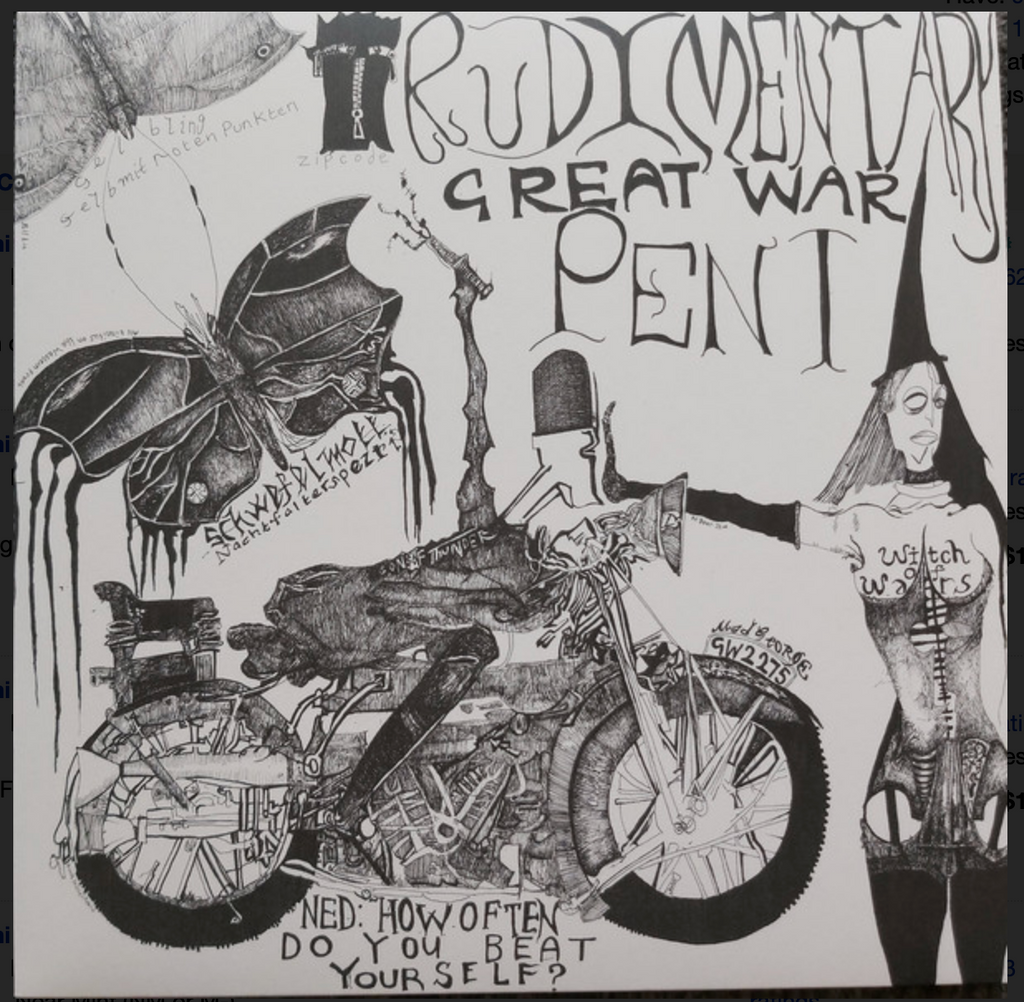 RUDYMENTARY
GREAT WAR
PENT
bling
Gelb mit Roten Punkten
zipcode
Nachtfalterspezri
THUNDER
Witch
of
Wafrs
Mad George
GW2275
NED: HOW OFTEN
DO YOU BEAT
YOURSELF?